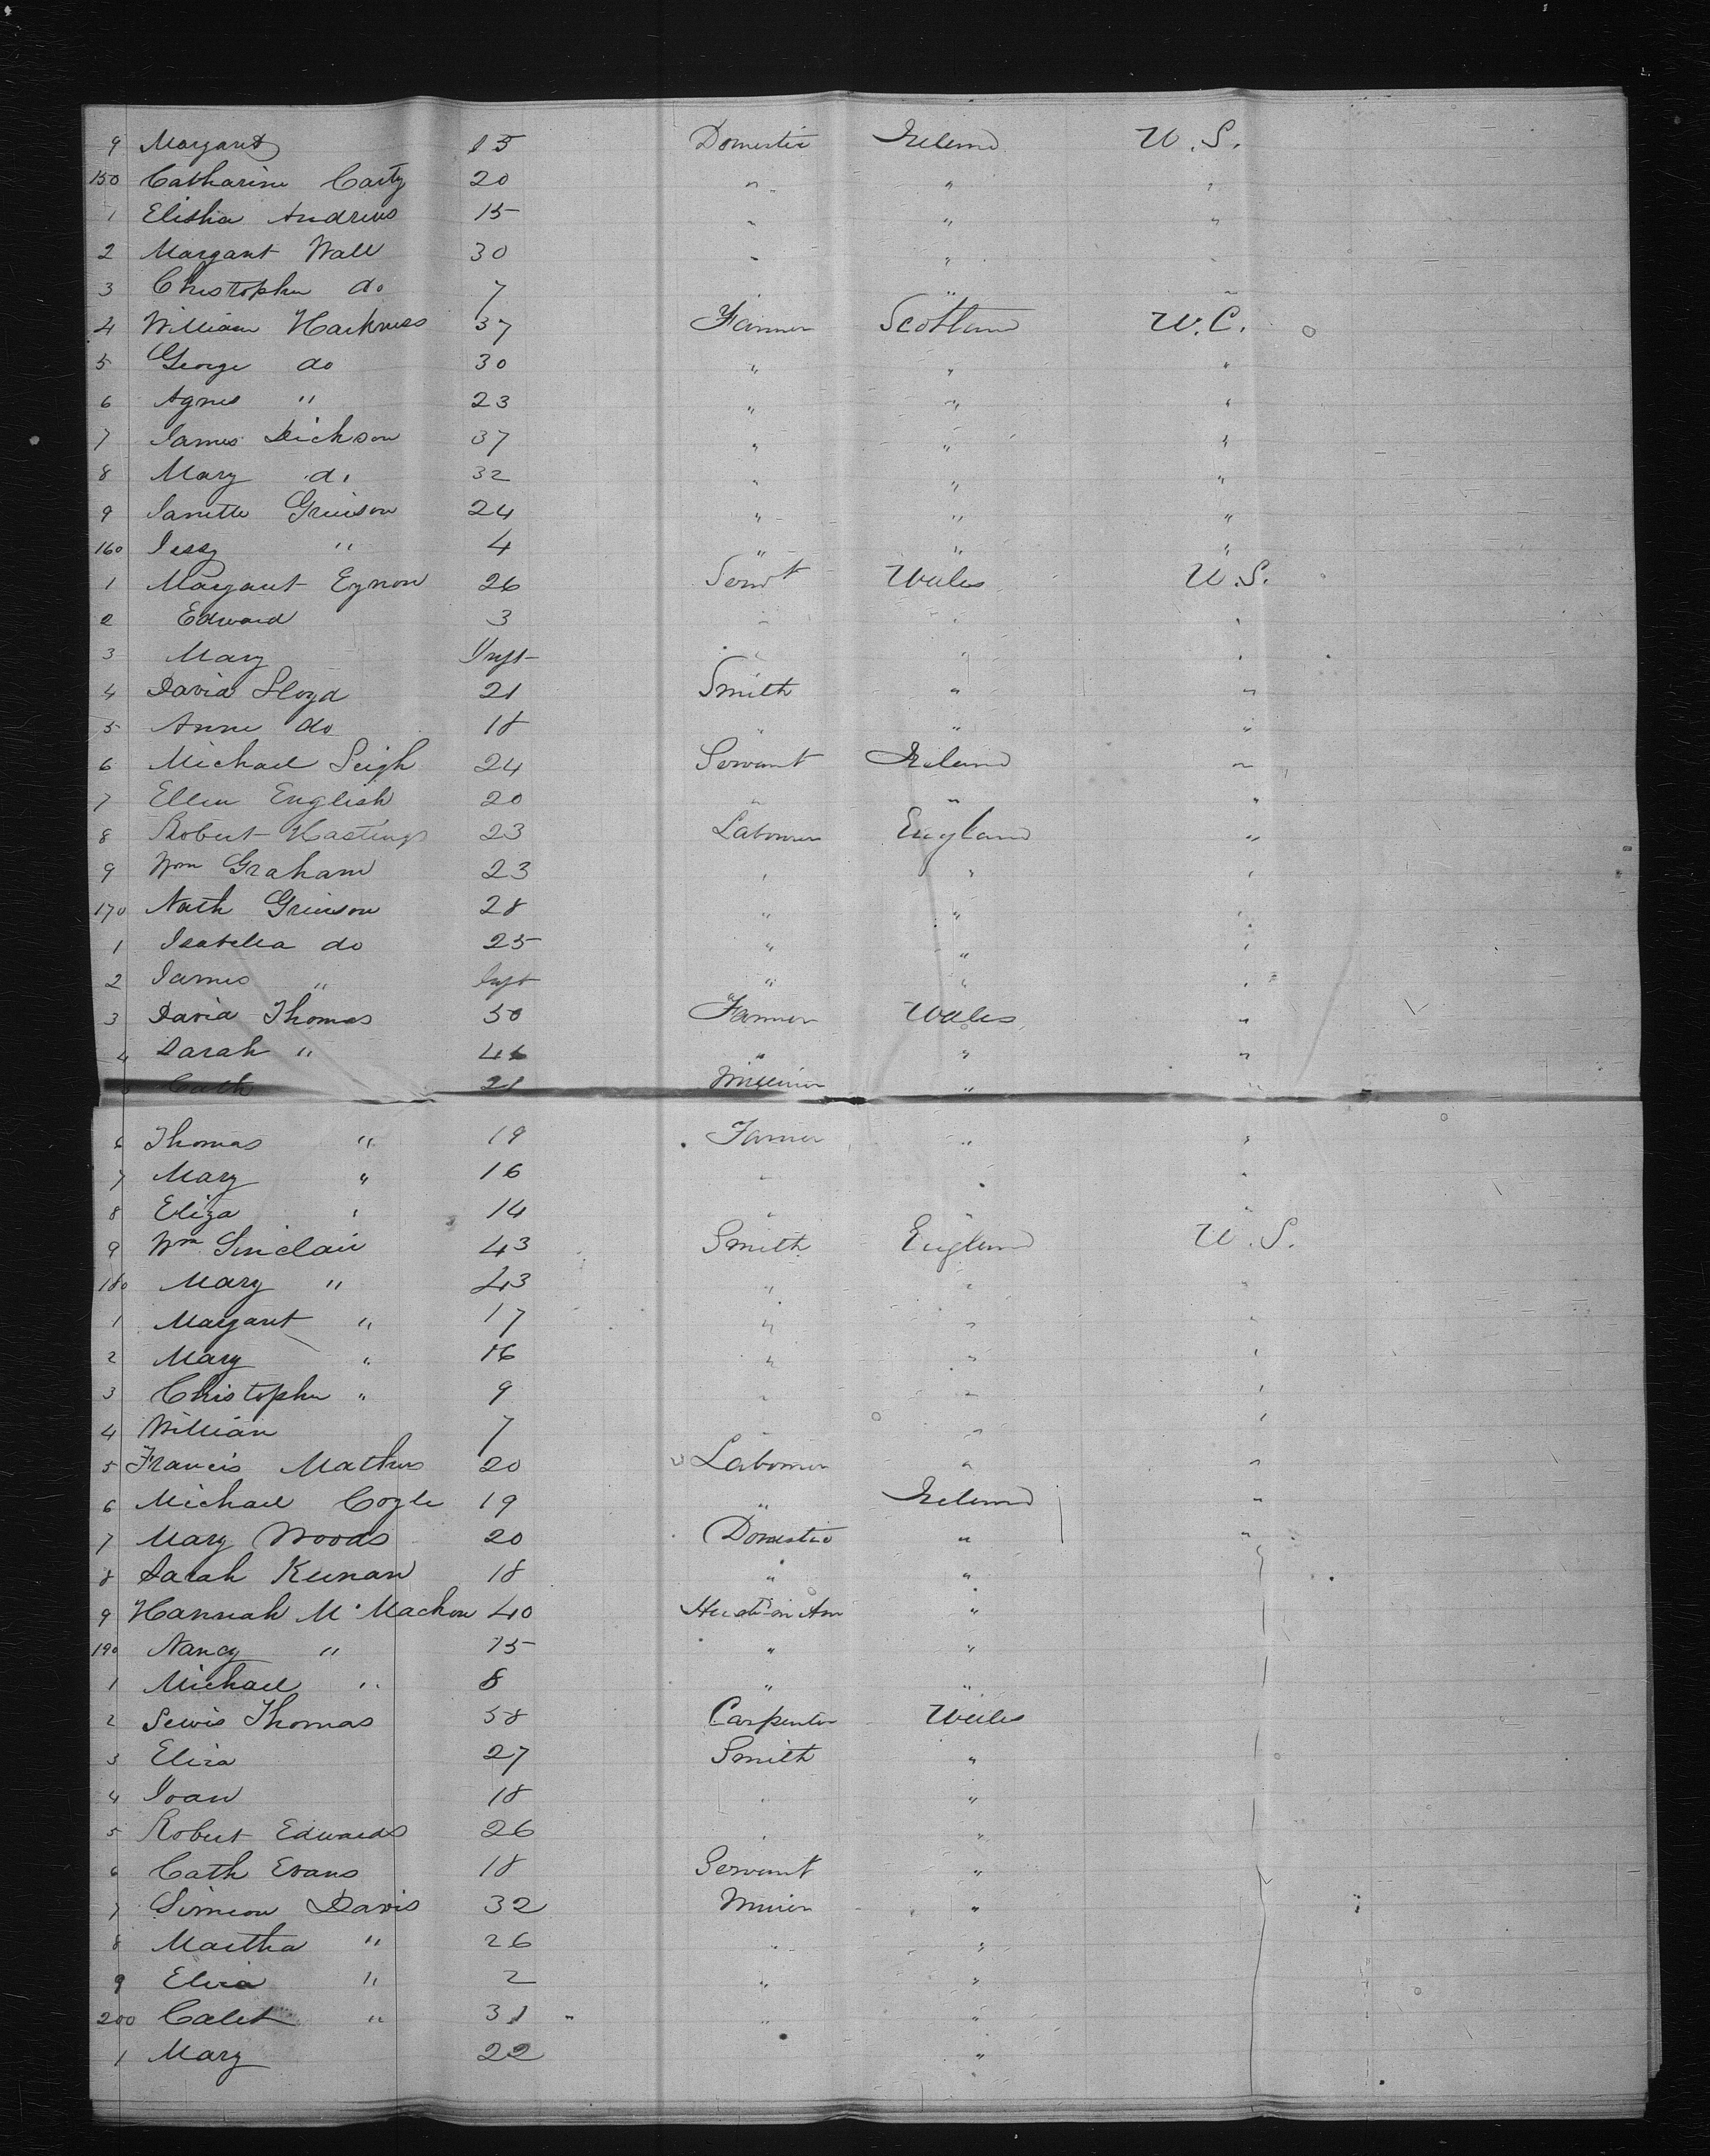 9 Margaret 15 Domestic Ireland U.S.
150 Catharine Carty 20 " " "
1 Elisha Andrews 15 " " "
2 Margaret Wall 30 " " "
3 Christopher do 7 " " "
4 William Harkness 37 Farmer Scotland U.C.
5 George do 30 " " "
6 Agnes " 23 " " "
7 James Dickson 37 " " "
8 Mary do 32 " " "
9 Janette Grierson 24 " " "
160 Jessy " 4 " " "
1 Margaret Eynon 26 Servt Wales U.S.
2 Edward 3 " " "
3 Mary Inft " " "
4 David Lloyd 21 Smith " "
5 Anne do 18 " " "
6 Michael Leigh 24 Servant Ireland "
7 Ellen English 20 " " "
8 Robert Hastings 23 Labourer England "
9 Wm Graham 23 " " "
170 Nath Grierson 28 " " "
1 Isabella do 25 " " "
2 James " Inft " " "
3 David Thomas 50 Farmer Wales "
4 Sarah " 46 " " "
5 Cath 21 Milliner " "
6 Thomas " 19 Farmer " "
7 Mary " 16 " " "
8 Eliza " 14 " " "
9 Wm Sinclair 43 Smith England U.S.
180 Mary " 43 " " "
1 Margaret " 17 " " "
2 Mary " 16 " " "
3 Christopher " 9 " " "
4 William 7 " "
5 Francis Mathews 20 Labourer " "
6 Michael Cogle 19 " Ireland "
7 Mary Woods 20 Domestic " "
8 Sarah Keenan 18 " "
9 Hannah McMachon 40 Husbd in Am "
190 Nancy " 15 " "
1 Michael " 8 " "
2 Lewis Thomas 58 Carpenter Wales
3 Eliza 27 Smith "
4 Joan 18 " "
5 Robert Edwards 26 " "
6 Cath Evans 18 Servant "
7 Simeon Davis 32 Miner "
8 Martha " 26 " "
9 Eliza " 2 " "
200 Caleb " 31 " "
1 Mary 22 "